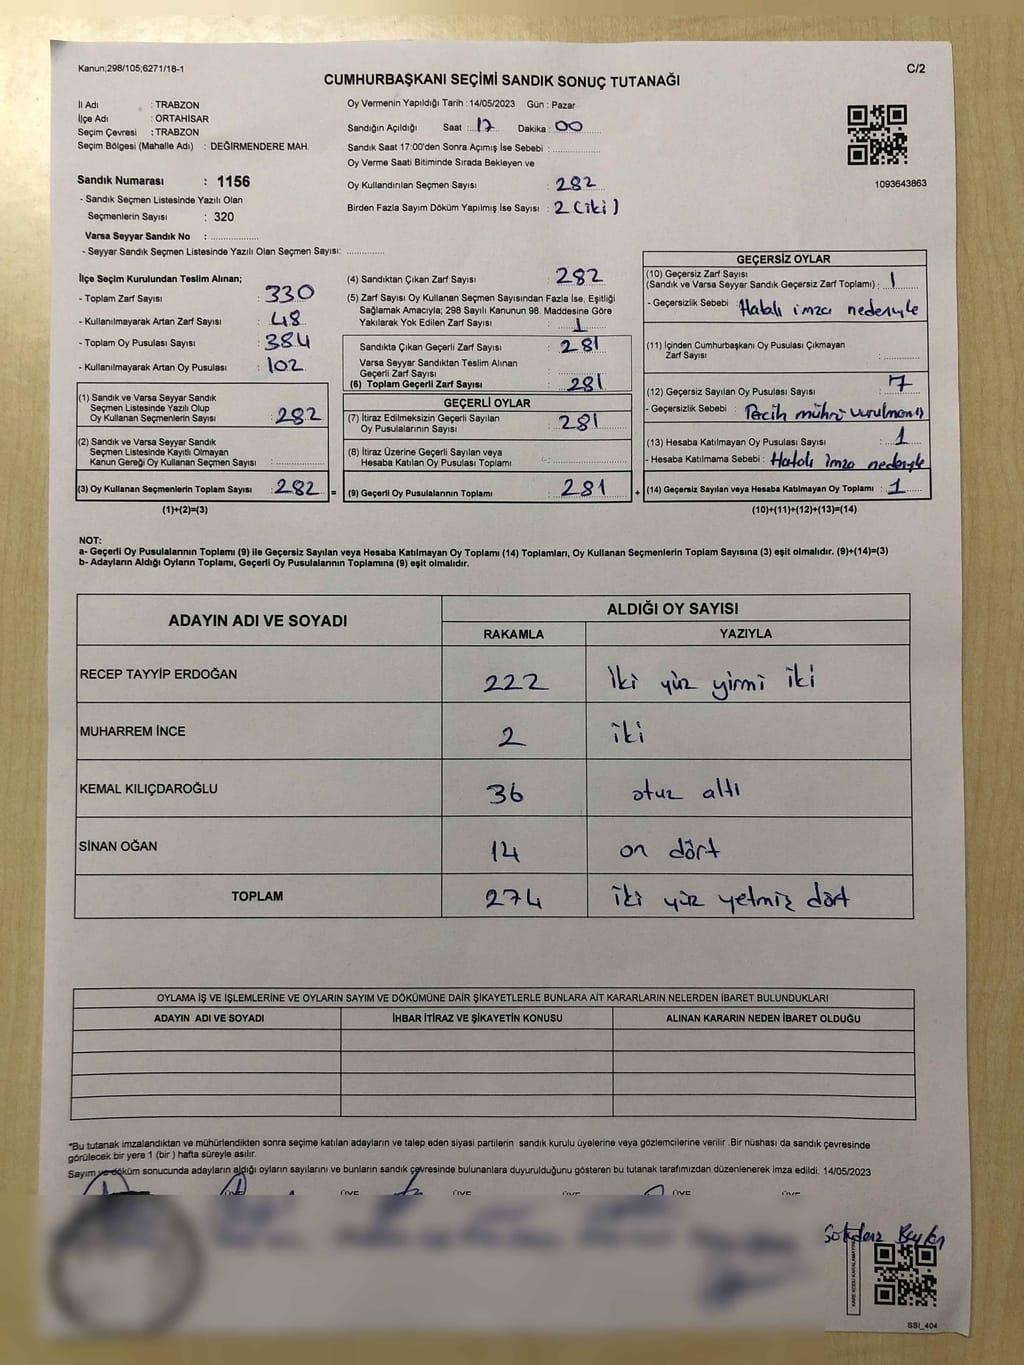 Kanun;298/105;6271/18-1
C/2
CUMHURBAŞKANI SEÇİMİ SANDIK SONUÇ TUTANAĞI
İl Adı : TRABZON
İlçe Adı : ORTAHİSAR
Seçim Çevresi : TRABZON
Seçim Bölgesi (Mahalle Adı) : DEĞİRMENDERE MAH.
Sandık Numarası : 1156
- Sandık Seçmen Listesinde Yazılı Olan
Seçmenlerin Sayısı : 320
Varsa Seyyar Sandık No : ..................
- Seyyar Sandık Seçmen Listesinde Yazılı Olan Seçmen Sayısı: ..............
Oy Vermenin Yapıldığı Tarih : 14/05/2023 Gün : Pazar
Sandığın Açıldığı Saat : 17 Dakika : 00
Sandık Saat 17:00'den Sonra Açımış İse Sebebi : ..................
Oy Verme Saati Bitiminde Sırada Bekleyen ve
Oy Kullandırılan Seçmen Sayısı : 282
Birden Fazla Sayım Döküm Yapılmış İse Sayısı : 2 (iki)
1093643863
İlçe Seçim Kurulundan Teslim Alınan;
- Toplam Zarf Sayısı : 330
- Kullanılmayarak Artan Zarf Sayısı : 48
- Toplam Oy Pusulası Sayısı : 384
- Kullanılmayarak Artan Oy Pusulası : 102
(1) Sandık ve Varsa Seyyar Sandık
Seçmen Listesinde Yazılı Olup
Oy Kullanan Seçmenlerin Sayısı : 282
(2) Sandık ve Varsa Seyyar Sandık
Seçmen Listesinde Kayıtlı Olmayan
Kanun Gereği Oy Kullanan Seçmen Sayısı :
(3) Oy Kullanan Seçmenlerin Toplam Sayısı : 282 =
(1)+(2)=(3)
(4) Sandıktan Çıkan Zarf Sayısı : 282
(5) Zarf Sayısı Oy Kullanan Seçmen Sayısından Fazla İse, Eşitliği
Sağlamak Amacıyla; 298 Sayılı Kanunun 98. Maddesine Göre
Yakılarak Yok Edilen Zarf Sayısı : 1
Sandıkta Çıkan Geçerli Zarf Sayısı : 281
Varsa Seyyar Sandıktan Teslim Alınan
Geçerli Zarf Sayısı :
(6) Toplam Geçerli Zarf Sayısı : 281
GEÇERLİ OYLAR
(7) İtiraz Edilmeksizin Geçerli Sayılan
Oy Pusulalarının Sayısı : 281
(8) İtiraz Üzerine Geçerli Sayılan veya
Hesaba Katılan Oy Pusulası Toplamı :
(9) Geçerli Oy Pusulalarının Toplamı : 281 +
GEÇERSİZ OYLAR
(10) Geçersiz Zarf Sayısı
(Sandık ve Varsa Seyyar Sandık Geçersiz Zarf Toplamı) : 1
- Geçersizlik Sebebi : Hatalı imza nedeniyle
(11) İçinden Cumhurbaşkanı Oy Pusulası Çıkmayan
Zarf Sayısı :
(12) Geçersiz Sayılan Oy Pusulası Sayısı : 7
- Geçersizlik Sebebi : Tercih mührü vurulmamış
(13) Hesaba Katılmayan Oy Pusulası Sayısı : 1
- Hesaba Katılmama Sebebi : Hatalı imza nedeniyle
(14) Geçersiz Sayılan veya Hesaba Katılmayan Oy Toplamı : 1
(10)+(11)+(12)+(13)=(14)
NOT:
a- Geçerli Oy Pusulalarının Toplamı (9) ile Geçersiz Sayılan veya Hesaba Katılmayan Oy Toplamı (14) Toplamları, Oy Kullanan Seçmenlerin Toplam Sayısına (3) eşit olmalıdır. (9)+(14)=(3)
b- Adayların Aldığı Oyların Toplamı, Geçerli Oy Pusulalarının Toplamına (9) eşit olmalıdır.
ADAYIN ADI VE SOYADI ALDIĞI OY SAYISI
RAKAMLA YAZIYLA
RECEP TAYYİP ERDOĞAN 222 iki yüz yirmi iki
MUHARREM İNCE 2 iki
KEMAL KILIÇDAROĞLU 36 otuz altı
SİNAN OĞAN 14 on dört
TOPLAM 274 iki yüz yetmiş dört
OYLAMA İŞ VE İŞLEMLERİNE VE OYLARIN SAYIM VE DÖKÜMÜNE DAİR ŞİKAYETLERLE BUNLARA AİT KARARLARIN NELERDEN İBARET BULUNDUKLARI
ADAYIN ADI VE SOYADI İHBAR İTİRAZ VE ŞİKAYETİN KONUSU ALINAN KARARIN NEDEN İBARET OLDUĞU
*Bu tutanak imzalandıktan ve mühürlendikten sonra seçime katılan adayların ve talep eden siyasi partilerin sandık kurulu üyelerine veya gözlemcilerine verilir .Bir nüshası da sandık çevresinde
görülecek bir yere 1 (bir ) hafta süreyle asılır.
Sayım ve döküm sonucunda adayların aldığı oyların sayılarını ve bunların sandık çevresinde bulunanlara duyurulduğunu gösteren bu tutanak tarafımızdan düzenlenerek imza edildi. 14/05/2023
ÜYE ÜYE ÜYE ÜYE ÜYE ÜYE
KARE KODU KARALAMAYINIZ
SSI_404